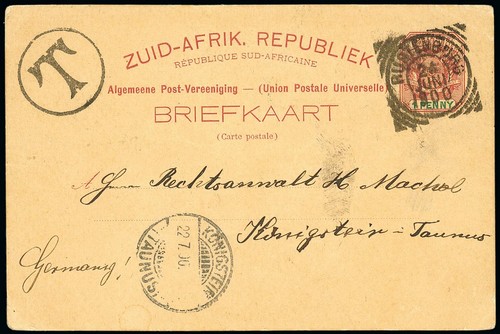 T
ZUID-AFRIK. REPUBLIEK
RÉPUBLIQUE SUD-AFRICAINE
Algemeene Post-Vereeniging — (Union Postale Universelle)
BRIEFKAART
(Carte postale)
RUSTENBURG
JUN
1900
1 PENNY
Herrn Rechtsanwalt H
Königstein i Taunus
Germany!
KÖNIGSTEIN
22.7.00.
(TAUNUS)